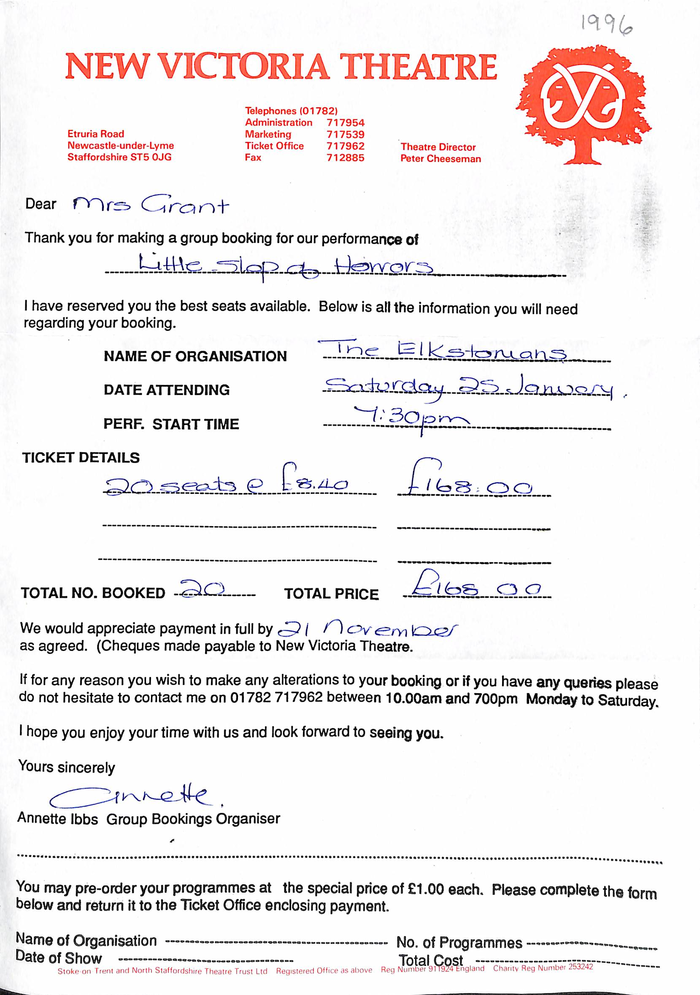 1996
NEW VICTORIA THEATRE
Etruria Road
Newcastle-under-Lyme
Staffordshire ST5 0JG
Telephones (01782)
Administration 717954
Marketing 717539
Ticket Office 717962
Fax 712885
Theatre Director
Peter Cheeseman
Dear Mrs Grant
Thank you for making a group booking for our performance of
Little Shop of Horrors
I have reserved you the best seats available. Below is all the information you will need
regarding your booking.
NAME OF ORGANISATION The Elkstonians
DATE ATTENDING Saturday 25 January.
PERF. START TIME 7:30pm
TICKET DETAILS
20 seats @ £8.40 £168:00
TOTAL NO. BOOKED 20 TOTAL PRICE £168 00
We would appreciate payment in full by 21 November
as agreed. (Cheques made payable to New Victoria Theatre.
If for any reason you wish to make any alterations to your booking or if you have any queries please
do not hesitate to contact me on 01782 717962 between 10.00am and 700pm Monday to Saturday.
I hope you enjoy your time with us and look forward to seeing you.
Yours sincerely
Annette.
Annette Ibbs Group Bookings Organiser
You may pre-order your programmes at the special price of £1.00 each. Please complete the form
below and return it to the Ticket Office enclosing payment.
Name of Organisation No. of Programmes
Date of Show Total Cost
Stoke on Trent and North Staffordshire Theatre Trust Ltd Registered Office as above Reg Number 911924 England Charity Reg Number 253242